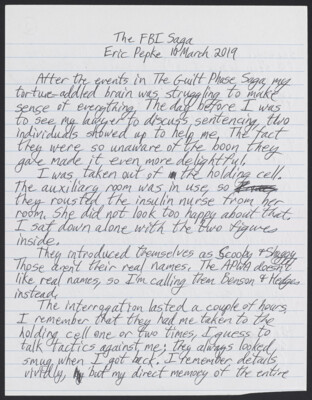 The FBI Saga
Eric Pepke 10 March 2019
After the events in The Guilt Phase Saga, my
tortue-addled brain was struggling to make
sense of everything. The day before I was
to see my lawyer to discuss sentencing, two
individuals showed up to help me. The fact
they were so unaware of the boon they
gave made it even more delightful.
I was taken out of the holding cell.
The auxiliary room was in use, so
they rousted the insulin nurse from her
room. She did not look too happy about that.
I sat down alone with the two figures
inside.
They introduced themselves as Scooby & Shaggy.
Those aren't their real names. The APWA doesn't
like real names, so I'm calling them Benson & Hedges
instead.
The interrogation lasted a couple of hours.
I remember that they had me taken to the
holding cell one or two times, I guess to
talk tactics against me; they always looked
smug when I got back. I remember details
vividly, but my direct memory of the entire